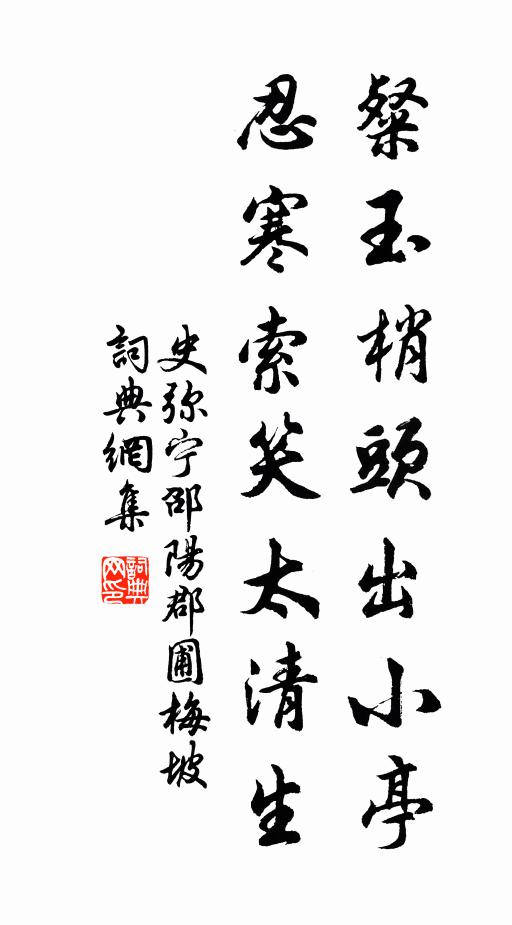 粲玉梢頭出小亭
忍寒索笑太清生
史弥宁邵陽郡圃梅坡
詞典網集
詞典网印